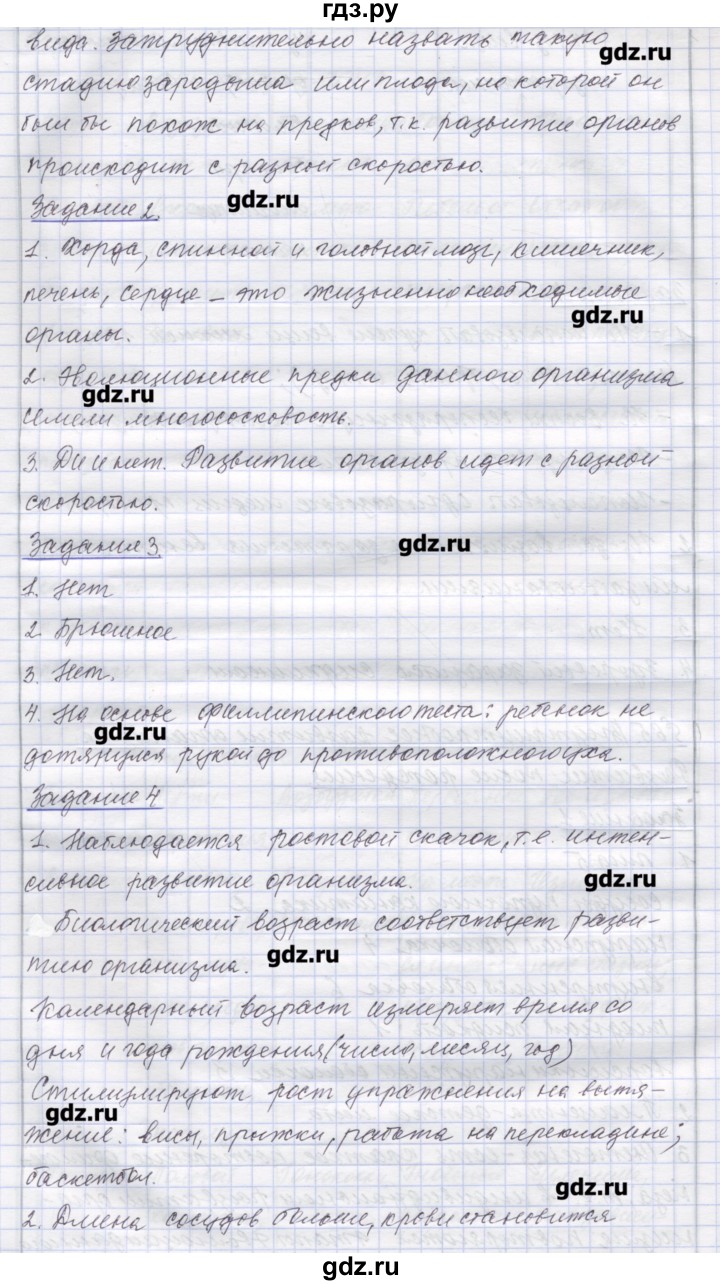 гдз.ру
вида. Затруднительно назвать такую
gdz.ru
стадию зародыша или плода, на которой он
был бы похож на предков, т.к. развитие органов
происходит с разной скоростью.
gdz.ru
Задание 2.
1. Хорда, спинной и головной мозг, кишечник,
печень, сердце – это жизненно необходимые
gdz.ru
органы.
2. Эволюционные предки данного организма
gdz.ru
имели многососковость.
3. Да и нет. Развитие органов идет с разной
скоростью.
Задание 3.
gdz.ru
1. Нет
2. Брюшное
3. Нет.
4. На основе филлипинского теста: ребенок не
gdz.ru
дотянулся рукой до противоположного уха.
Задание 4
1. Наблюдается ростовой скачок, т.е. интен-
сивное развитие организма.
gdz.ru
Биологический возраст соответствует разви-
тию организма.
gdz.ru
Календарный возраст измеряет время со
дня и года рождения (число, месяц, год)
Стимулируют рост упражнения на вытя-
gdz.ru
жение: висы, прыжки, работа на перекладине;
баскетбол.
gdz.ru
2. Длина сосудов больше, крови становится
gdz.ru